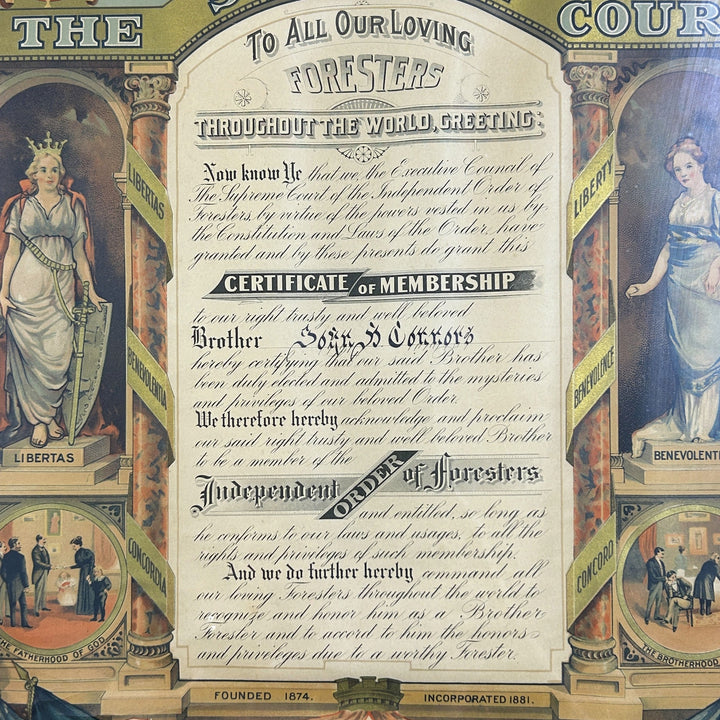 THE
COUR
TO ALL OUR LOVING
FORESTERS
THROUGHOUT THE WORLD, GREETING:
Now know Ye that we, the Executive Council of
The Supreme Court of the Independent Order of
Foresters, by virtue of the powers vested in us by
the Constitution and Laws of the Order, have
granted and by these presents do grant this
CERTIFICATE OF MEMBERSHIP
to our right trusty and well beloved
Brother John S Connors
hereby certifying that our said Brother has
been duly elected and admitted to the mysteries
and privileges of our beloved Order.
We therefore hereby acknowledge and proclaim
our said right trusty and well beloved Brother
to be a member of the
Independent ORDER of Foresters
and entitled, so long as
he conforms to our laws and usages, to all the
rights and privileges of such membership.
And we do further hereby command all
our loving Foresters throughout the world to
recognize and honor him as a Brother
Forester and to accord to him the honors
and privileges due to a worthy Forester.
LIBERTAS
BENEVOLENTIA
CONCORDIA
LIBERTY
BENEVOLENCE
CONCORD
LIBERTAS
BENEVOLENTI
THE FATHERHOOD OF GOD
THE BROTHERHOOD
FOUNDED 1874. INCORPORATED 1881.